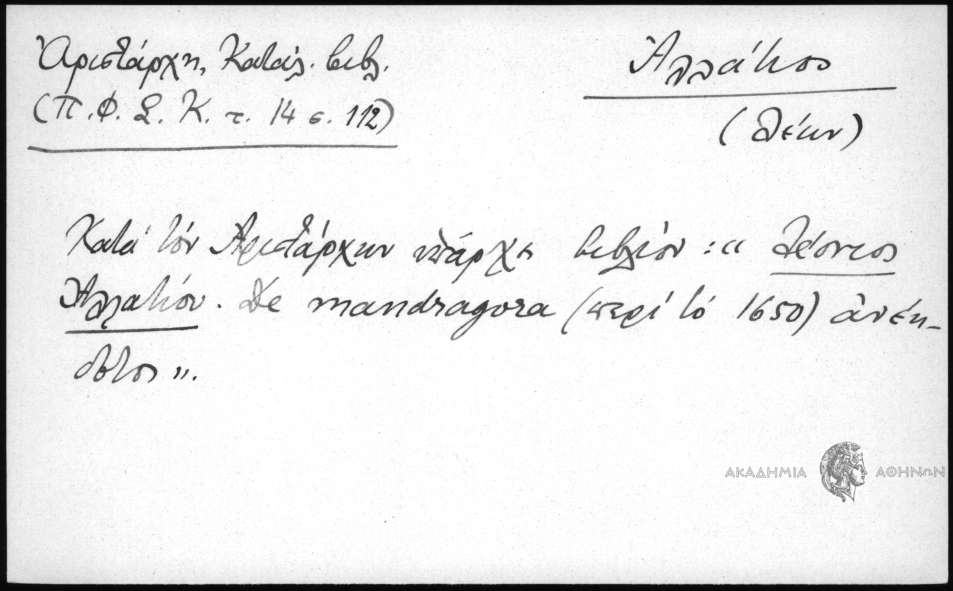 Ἀριστάρχη, Κατάλ. βιβλ.
(Π. Φ. Σ. Κ. τ. 14 σ. 112)
Ἀλλάτιος
(Λέων)
Κατά τόν Ἀριστάρχην ὑπάρχει βιβλίον: « Λέοντος
Ἀλλατίου. De mandragora (περί τό 1650) ἀνέκ-
δοτος ».
ΑΚΑΔΗΜΙΑ ΑΘΗΝΩΝ